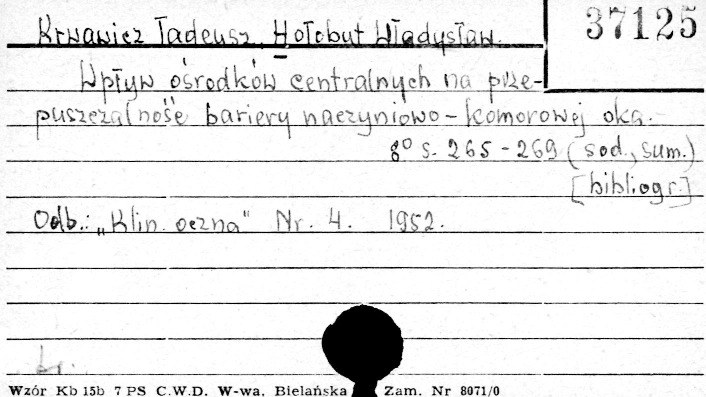 37125
Krwawicz Tadeusz, Hołobut Władysław.
Wpływ ośrodków centralnych na prze-
puszczalność bariery naczyniowo-komorowej oka.-
8° s. 265-269 (sod., sum.)
[bibliogr.]
Odb.: „Klin. oczna" Nr. 4. 1952.
Wzór Kb 15b 7 PS C.W.D. W-wa, Bielańska Zam. Nr 8071/0